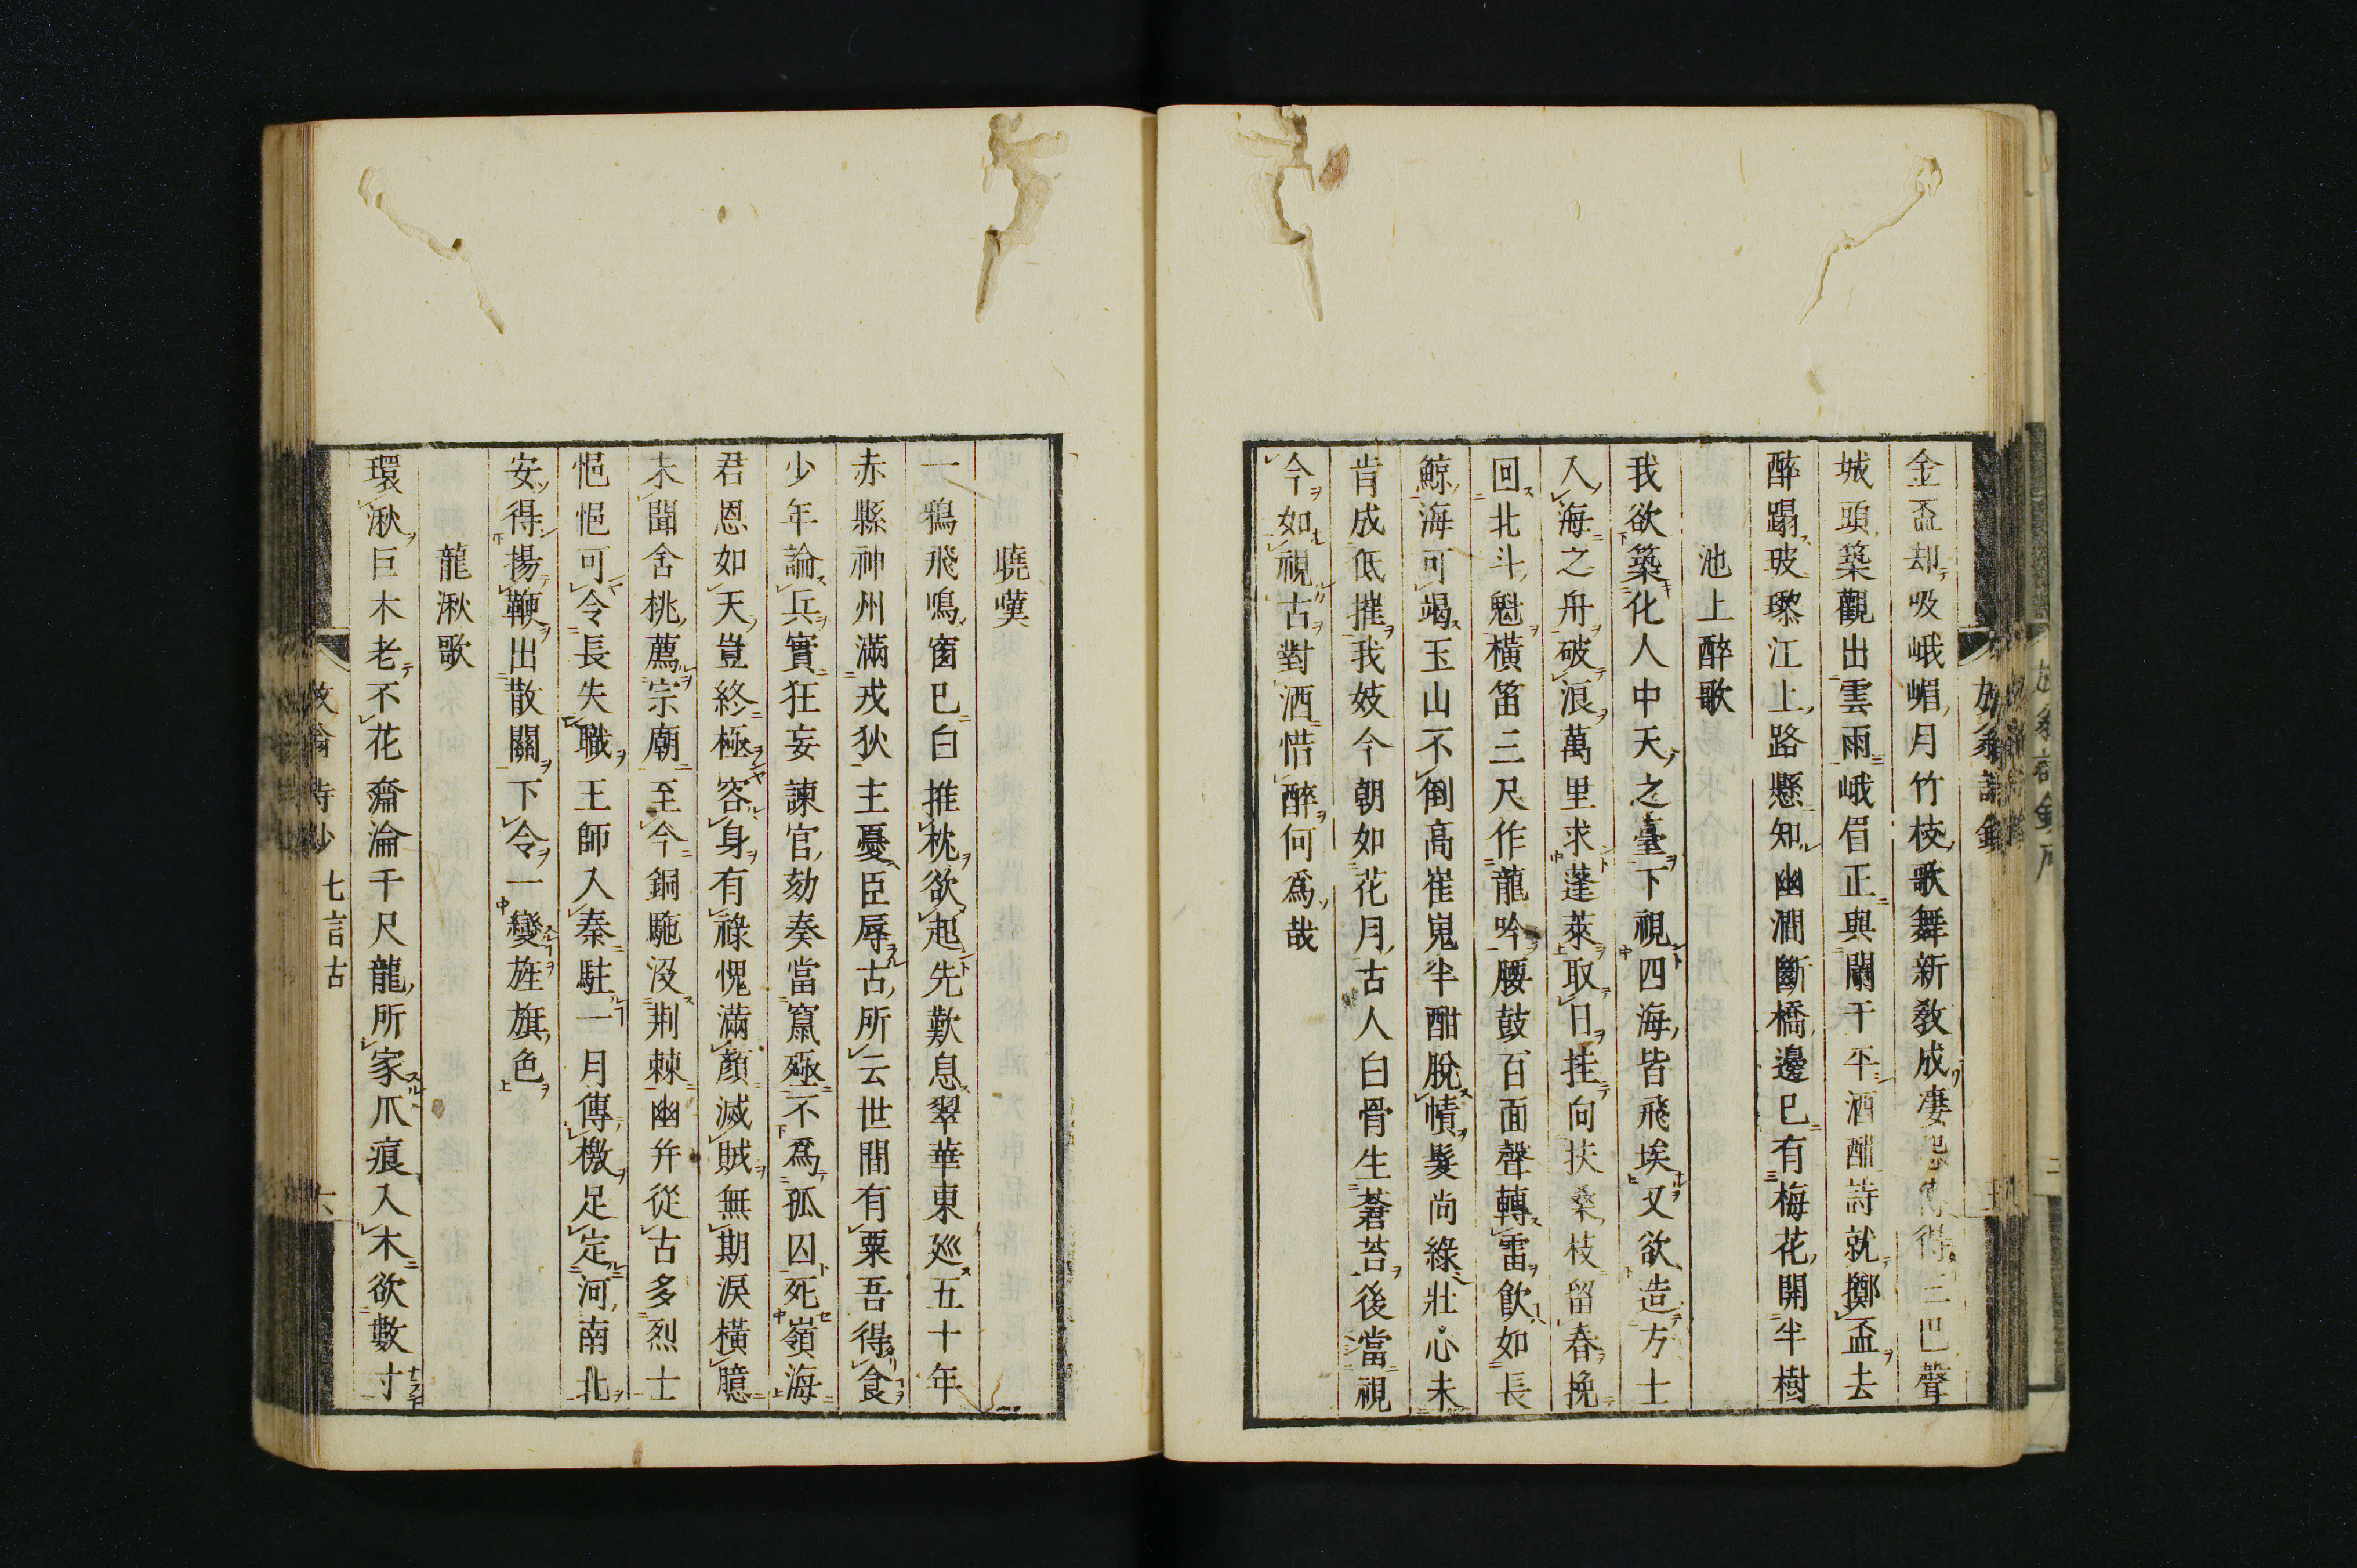 金盃却吸峨嵋月竹枝歌舞新敎成凄怨傳得三巴聲
城頭築觀出雲雨峨眉正與闌干平酒酣詩就擲盃去
醉蹋玻瓈江上路懸知幽澗斷橋邊已有梅花開半樹
池上醉歌
我欲築化人中天之臺下視四海皆飛埃又欲造方士
入海之舟破浪萬里求蓬萊取日挂向扶桑枝留春挽
回北斗魁橫笛三尺作龍吟腰鼓百面聲轉雷飮如長
鯨海可竭玉山不倒高崔嵬半酣脫幘髮尚綠壯心未
肯成低摧我妓今朝如花月古人白骨生蒼苔後當視
今如視古對酒惜醉何爲哉
曉嘆
一鴉飛鳴窗已白推枕欲起先歎息翠華東廵五十年
赤縣神州滿戎狄主憂臣辱古所云世間有粟吾得食
少年論兵實狂妄諫官劾奏當竄殛不爲孤囚死嶺海
君恩如天豈終極容身有祿愧滿顏滅賊無期淚橫臆
未聞舍桃薦宗廟至今銅駞沒荆棘幽幷從古多烈士
悒悒可令長失職王師入秦駐一月傳檄足定河南北
安得揚鞭出散關下令一變旌旗色
龍湫歌
環湫巨木老不花奫淪千尺龍所家爪痕入木欲數寸
放翁詩鈔 七言古 六